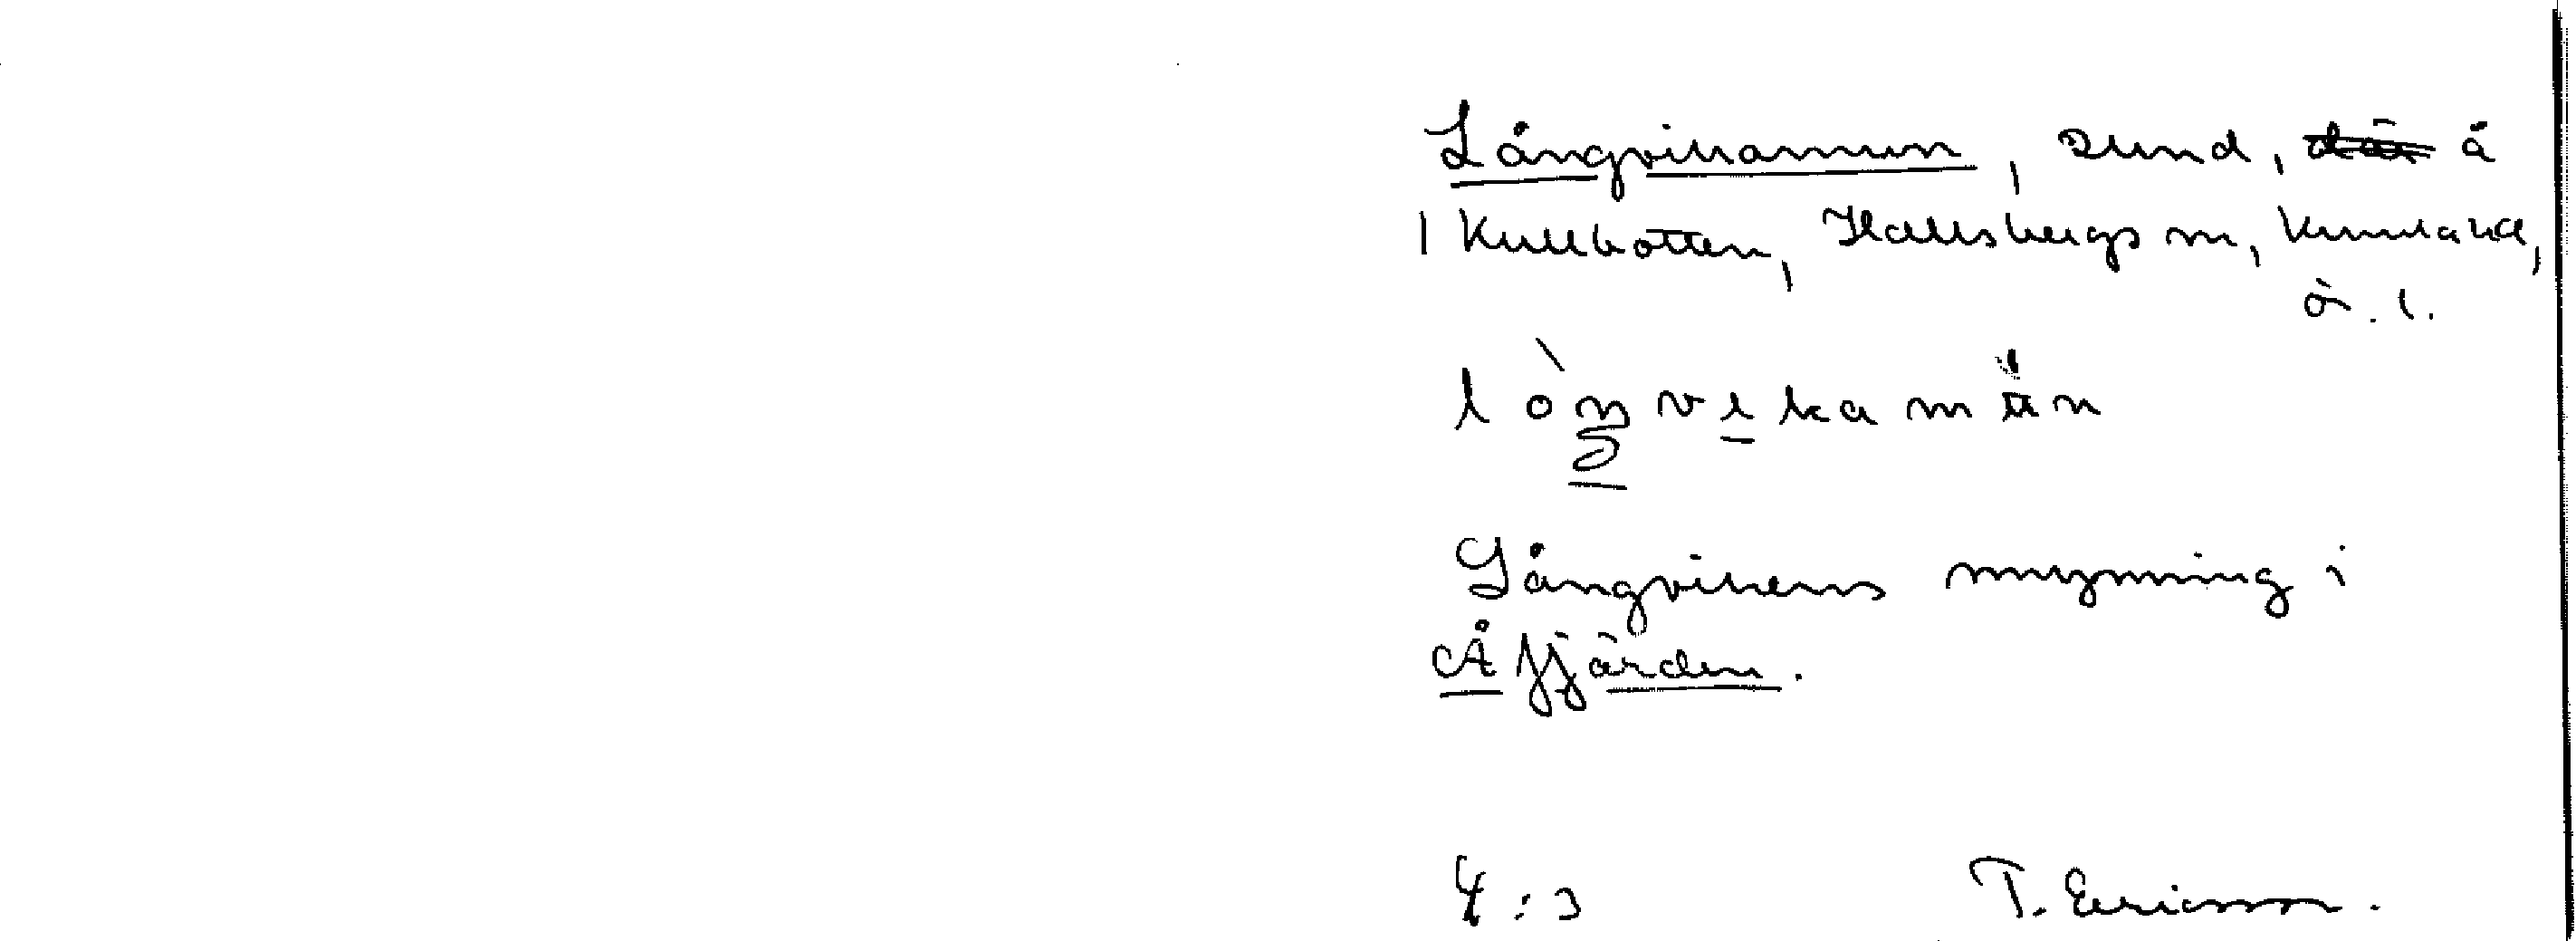 Långvikamun, sund, å
1 Kullbotten, Hallsbergs m,
ö. l.
lòŋvikamün
Långvikens mynning i
Åfjärden.
4:3 T. Ericsson.